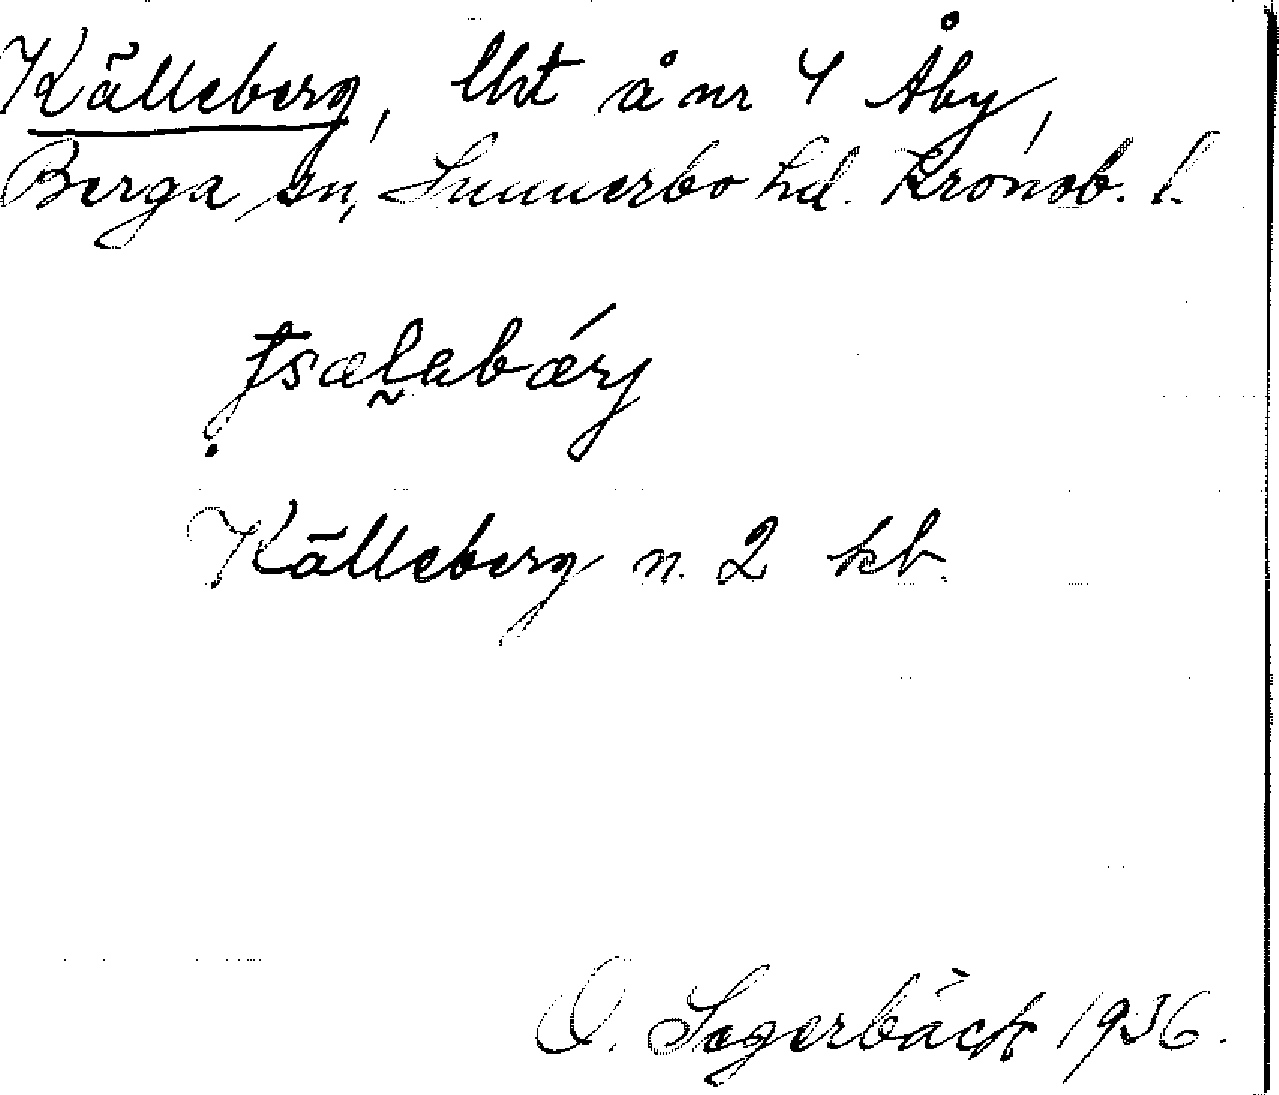 Källeberg, lht å nr 4 Åby,
Berga sn, Sunnerbo hd. Kronob. l.
Källeberg n. 2 kb.
O. Segerbäck 1936.